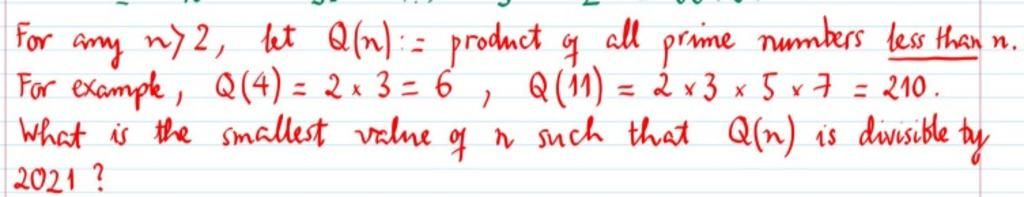 For any n>2, let Q(n) := product of all prime numbers less than n.
For example, Q(4) = 2 x 3 = 6 , Q(11) = 2 x 3 x 5 x 7 = 210.
What is the smallest value of n such that Q(n) is divisible by
2021 ?